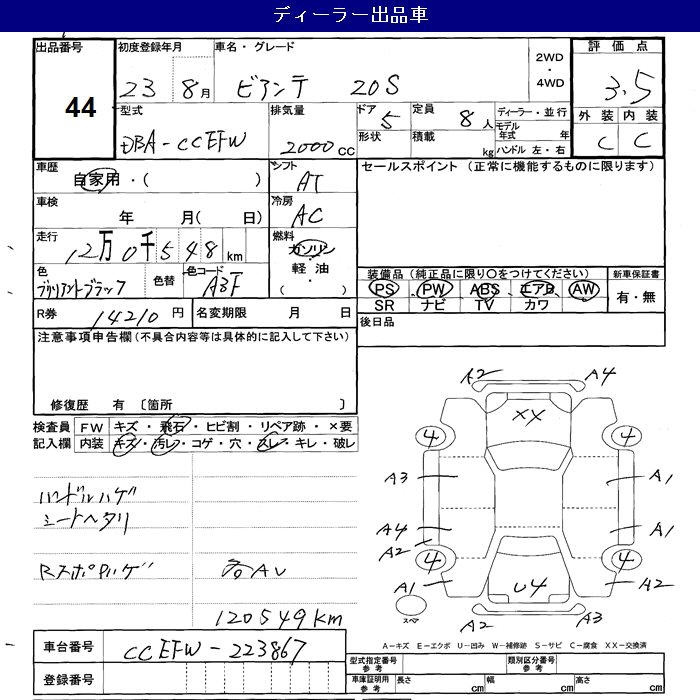 ディーラー出品車
出品番号 初度登録年月 車名・グレード 2WD・4WD 評価点
44 23 8月 ビアンテ 20S 3.5
型式 排気量 ドア 5 定員 8人 ディーラー・並行 外装 内装
DBA-CCEFW 2000cc 形状 積載 kg モデル年式 年 C C
ハンドル 左・右
車歴 シフト セールスポイント (正常に機能するものに限ります)
自家用・( ) AT
車検 冷房
年 月( 日) AC
走行 燃料
12万0千548km ガソリン
色 色替 色コード 軽油 装備品(純正品に限り○をつけてください) 新車保証書
ブリリアントブラック A3F ・( ) PS PW ABS エアB AW 有・無
SR ナビ TV カワ
R券 14210円 名変期限 月 日 後日品
注意事項申告欄(不具合内容等は具体的に記入して下さい)
修復歴 有 〔箇所 〕
検査員 FW キズ・飛石・ヒビ割・リペア跡・×要
記入欄 内装 キズ・汚レ・コゲ・穴・スレ・キレ・破レ
ハンドルハゲ
シートヘタリ
RスポPハゲ 社AV
120549km
A2 A4
XX
4 4
A3 A1
A4 A1
A2
4 4
A1 U4 A2
スペア A2 A3
A-キズ E-エクボ U-凹み W-補修跡 S-サビ C-腐食 XX-交換済
車台番号 CCEFW-223867
型式指定番号 参考 類別区分番号 参考
登録番号 車庫証明用 参考 長さ cm 幅 cm 高さ cm